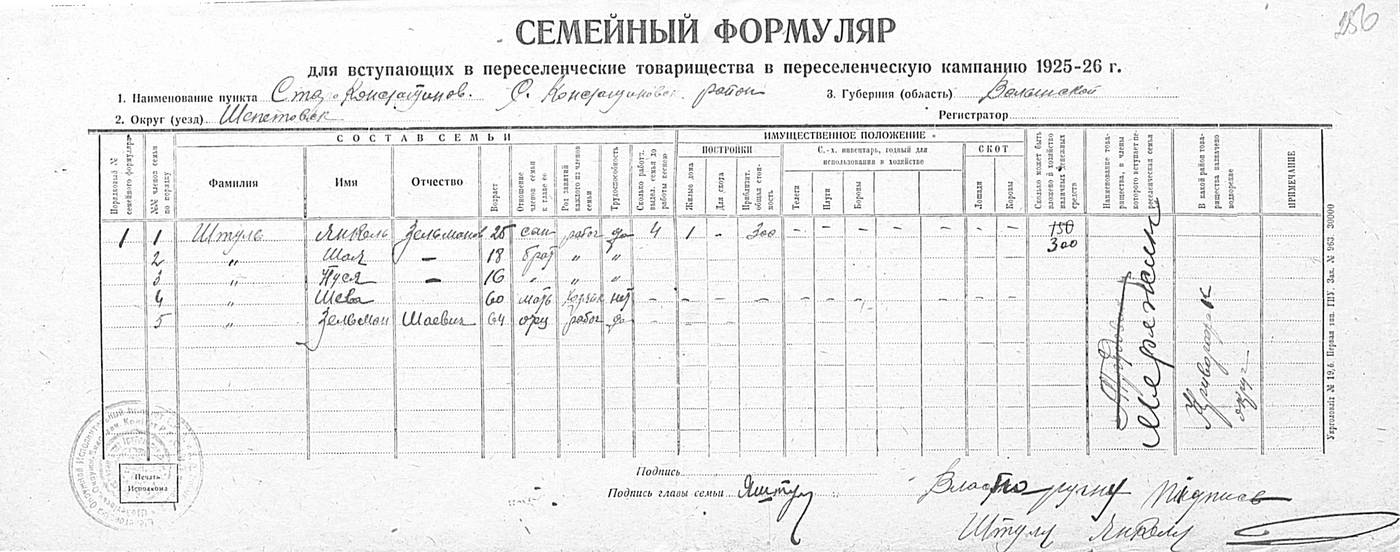 256
СЕМЕЙНЫЙ ФОРМУЛЯР
для вступающих в переселенческие товарищества в переселенческую кампанию 1925-26 г.
1. Наименование пункта Старо Константинов. С. Константиновск. район 3. Губерния (область) Волынской
2. Округ (уезд) Шепетовск Регистратор
СОСТАВ СЕМЬИ
ИМУЩЕСТВЕННОЕ ПОЛОЖЕНИЕ
ПОСТРОЙКИ
С.-х. инвентарь, годный для использования в хозяйстве
СКОТ
Порядковый № семейного формуляра
№№ членов семьи по порядку
Фамилия
Имя
Отчество
Возраст
Отношение членов семьи к главе ее
Род занятий каждого из членов семьи
Трудоспособность
Сколько работ. выдел. семья до работы весною
Жилые дома
Для скота
Приблизит. общая стоимость
Телеги
Плуги
Бороны
Лошади
Коровы
Сколько может быть вложено в хозяйство наличных денежных средств
Наименование товарищества, в члены которого вступает переселенческая семья
В какой район товарищества назначено водворение
ПРИМЕЧАНИЕ
1 1 Штуль Янкель Зельманов 25 сын рабоч да 4 1 - 300 - - - - - - - 150
300
2 " Шая — 18 брат " "
3 " Нуся — 16 " " "
4 " Шева 60 мать нет - - - - - - - - - -
5 " Зельман Шаевич 64 отец рабоч да
Мережин
Криворожск округ
Укрголовліт № 19,6. Первая тип. ГПУ. Зак. № 963 30000
Печать Исполкома
Подпись
Подпись главы семьи ЯШтуль
Власноручну підписав
Штуль Янкель